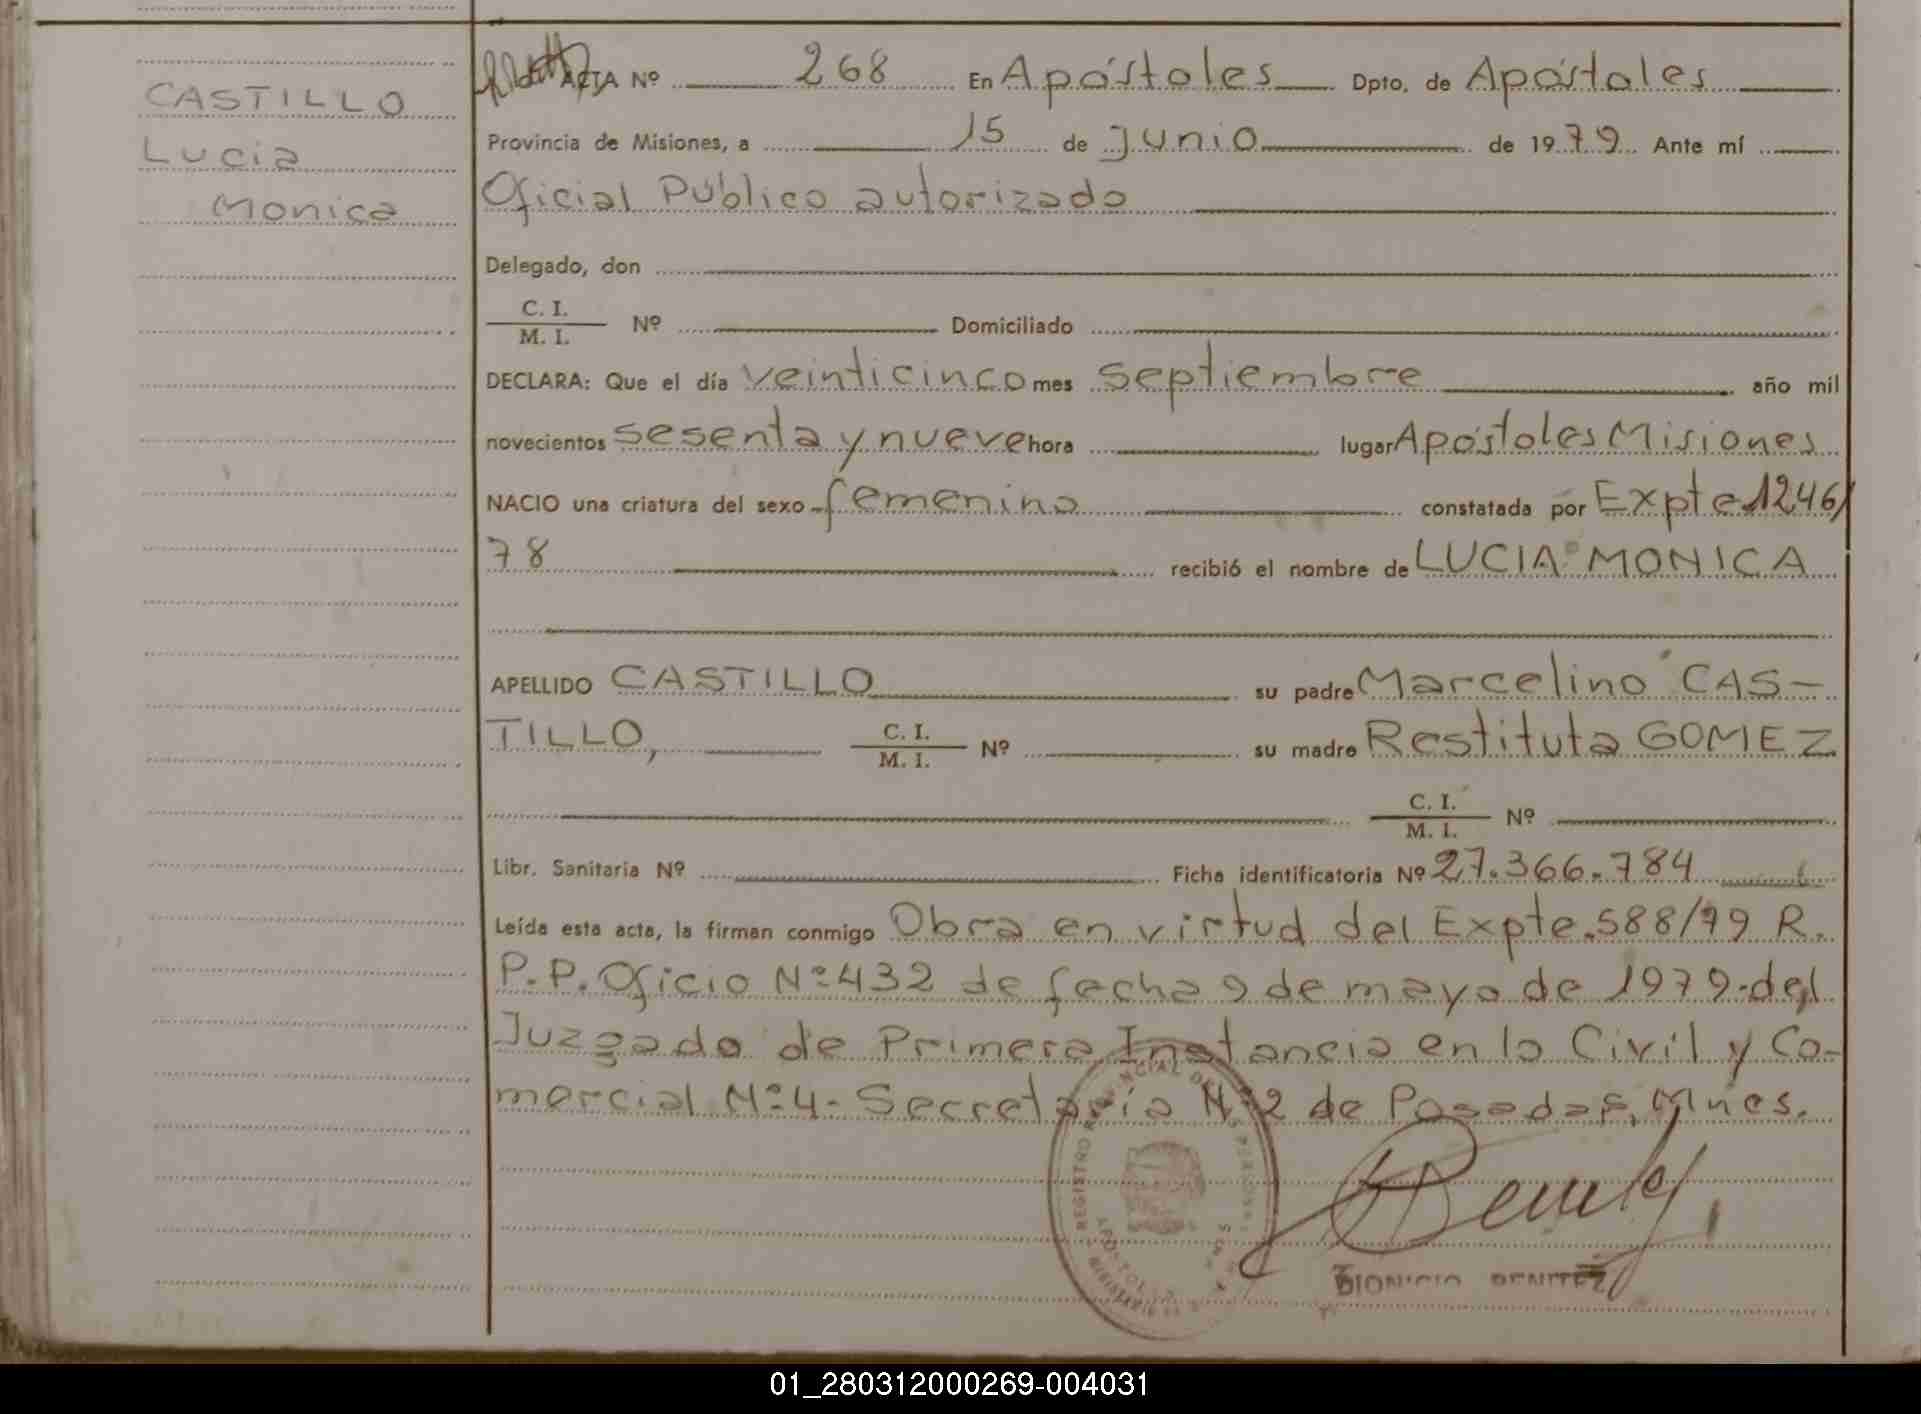 CASTILLO
Lucia
Monica
ACTA Nº 268 En Apóstoles Dpto. de Apóstoles
Provincia de Misiones, a 15 de Junio de 1979 Ante mí
Oficial Público autorizado
Delegado, don
C. I.
M. I. Nº Domiciliado
DECLARA: Que el día veinticinco mes septiembre año mil
novecientos sesenta y nueve hora lugar Apóstoles Misiones
NACIO una criatura del sexo femenino constatada por Expte 1246/
78 recibió el nombre de LUCIA MONICA
APELLIDO CASTILLO su padre Marcelino CAS-
TILLO, C. I.
M. I. Nº su madre Restituta GOMEZ
C. I.
M. I. Nº
Libr. Sanitaria Nº Ficha identificatoria Nº 27.366.784
Leída esta acta, la firman conmigo Obra en virtud del Expte. 588/79 R.
P.P. Oficio Nº 432 de fecha 9 de mayo de 1979 del
Juzgado de Primera Instancia en lo Civil y Co-
mercial Nº 4- Secretaría Nº 2 de Posadas, Mnes.
REGISTRO PROVINCIAL DE LAS PERSONAS
APOSTOLES
DIONICIO BENITEZ
01_280312000269-004031